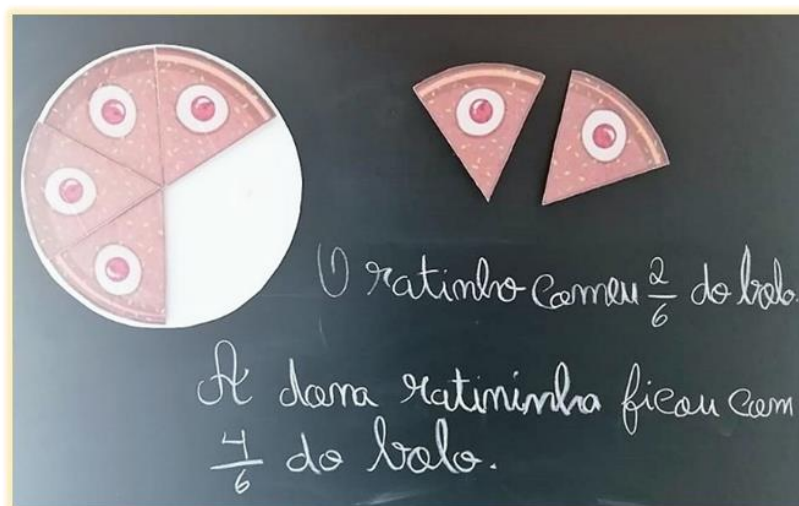 O ratinho comeu 2/6 do bolo.
A dona ratininha ficou com
4/6 do bolo.